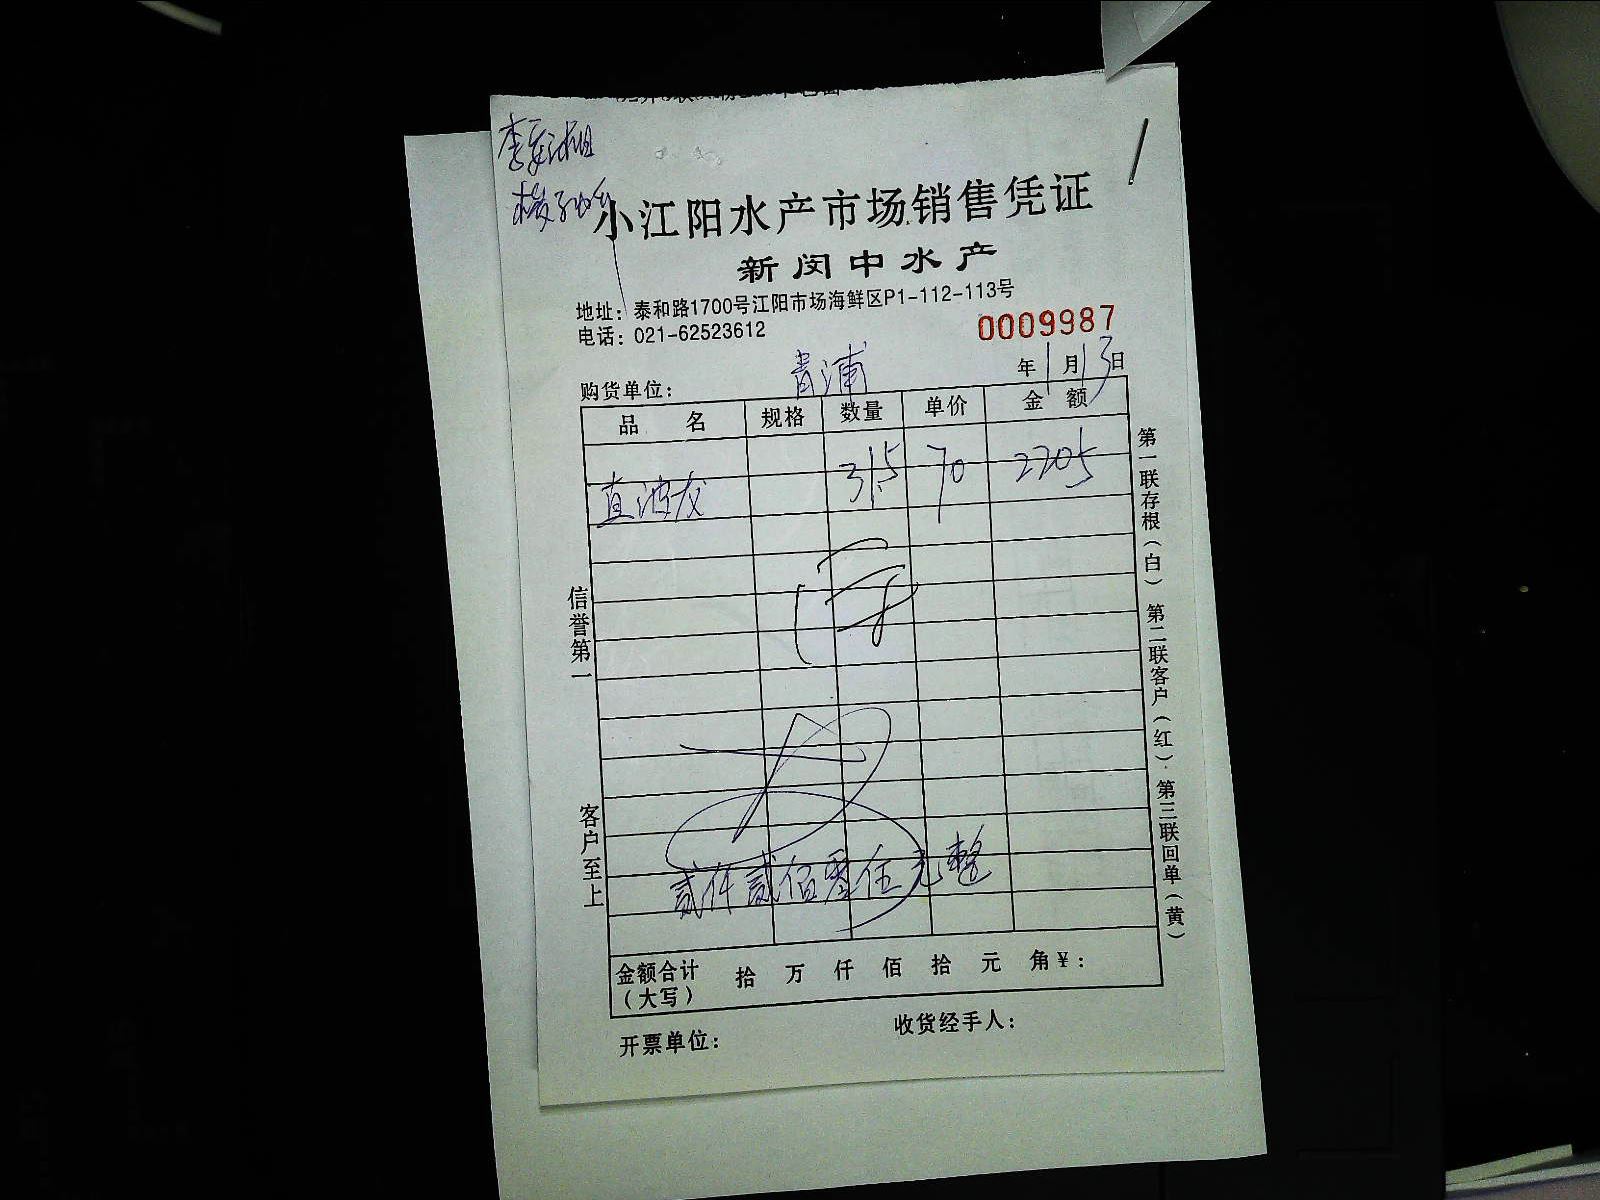 小江阳水产市场销售凭证
新闵中水产
地址：泰和路1700号江阳市场海鲜区P1-112-113号
电话：021-62523612
0009987
购货单位： 青浦 年1月13日
品 名 规格 数量 单价 金 额
直波龙 31.5 70 2205
贰仟贰佰零伍元整
金额合计（大写） 拾 万 仟 佰 拾 元 角￥：
开票单位： 收货经手人：
信誉第一 客户至上
第一联存根（白） 第二联客户（红） 第三联回单（黄）